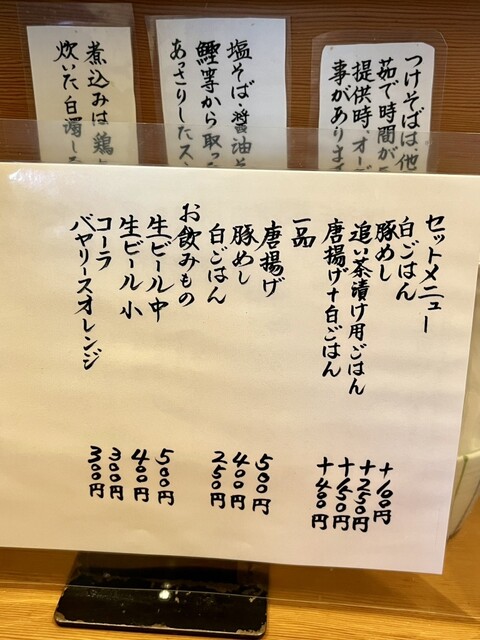 つけそばは、他
茹で時間が
提供時、オーダ
事があります
塩そば・醤油そ
鰹等から取っ
あっさりしたス
煮込みは鶏
炊いた白濁し
セットメニュー
白ごはん +100円
豚めし +250円
追い茶漬け用ごはん +150円
唐揚げ+白ごはん +400円
一品
唐揚げ 500円
豚めし 400円
白ごはん 250円
お飲みもの
生ビール中 500円
生ビール小 400円
コーラ 300円
バヤリースオレンジ 300円